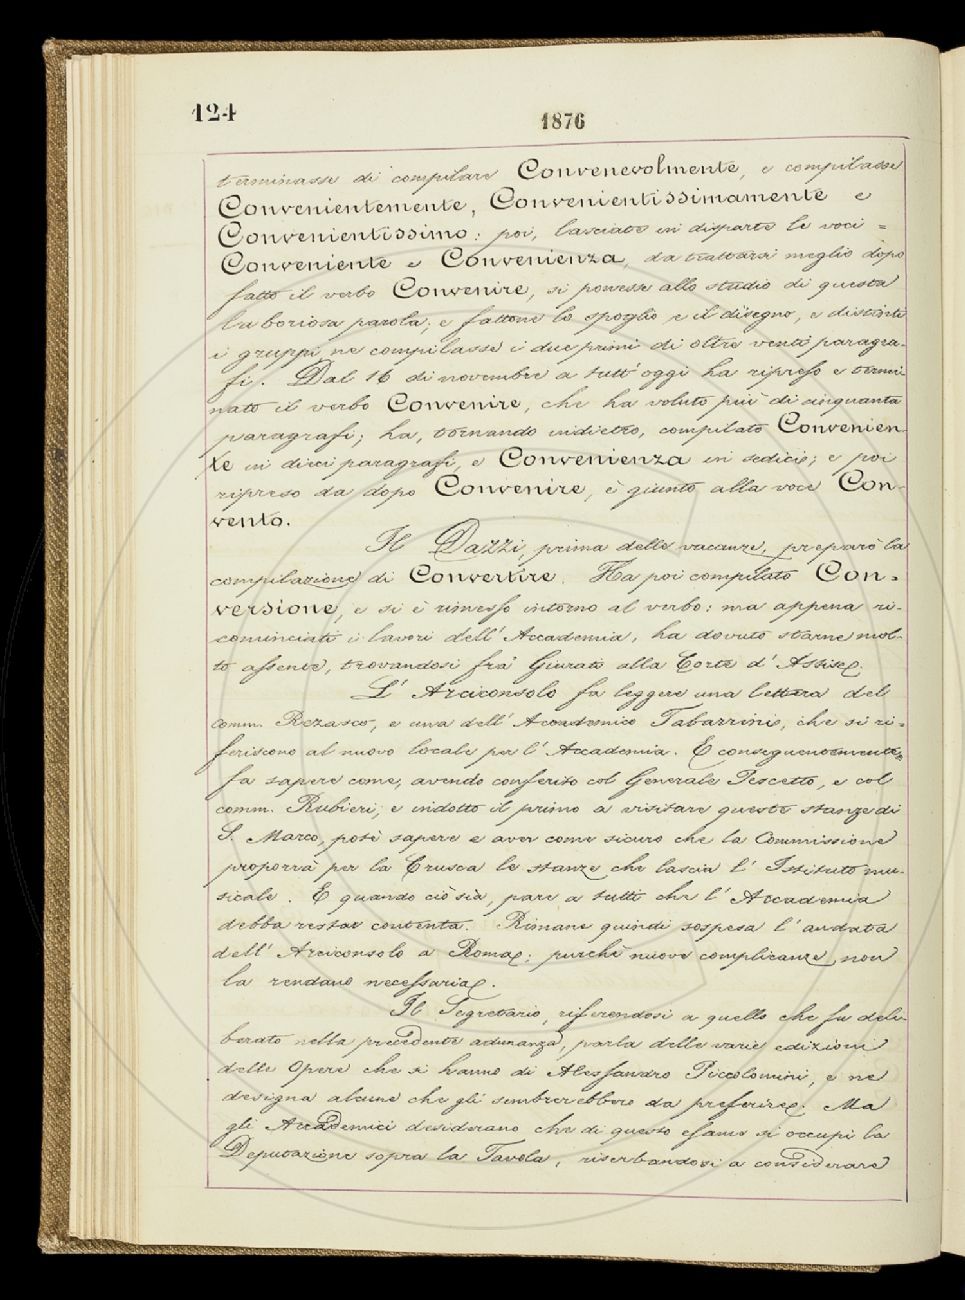 124
1876
terminasse di compilare Convenevolmente, e compilasse
Convenientemente, Convenientissimamente e
Convenientissimo: poi, lasciate in disparte le voci =
Conveniente e Convenienza, da trattarsi meglio dopo
fatto il verbo Convenire, si ponesse allo studio di questa
laboriosa parola; e fattone lo spoglio e il disegno, e distinti
i gruppi, ne compilasse i due primi di oltre venti paragra-
fi. Dal 16 di novembre a tutt'oggi ha ripreso e termi-
nato il verbo Convenire, che ha voluto più di cinquanta
paragrafi; ha, tornando indietro, compilato Convenien-
te in dieci paragrafi, e Convenienza in sedici; e poi
ripreso da dopo Convenire, è giunto alla voce Con-
vento.
Il Dazzi, prima delle vacanze, preparò la
compilazione di Convertire. Ha poi compilato Con-
versione, e si è rimesso intorno al verbo: ma appena ri-
cominciati i lavori dell'Accademia, ha dovuto starne mol-
to assente, trovandosi fra' Giurati alla Corte d'Assise.
L'Arciconsolo fa leggere una lettera del
comm. Rezasco, e una dell'Accademico Tabarrini, che si ri-
feriscono al nuovo locale per l'Accademia. E conseguentemente
fa sapere come, avendo conferito col Generale Pescetto, e col
comm. Rubieri, e indotto il primo a visitare queste stanze di
S. Marco, potè sapere e aver come sicuro che la Commissione
proporrà per la Crusca le stanze che lascia l'Istituto mu-
sicale. E quando ciò sia, pare a tutti che l'Accademia
debba restar contenta. Rimane quindi sospesa l'andata
dell'Arciconsolo a Roma; purchè nuove complicanze non
la rendano necessaria.
Il Segretario, riferendosi a quello che fu deli-
berato nella precedente adunanza, parla delle varie edizioni
delle Opere che si hanno di Alessandro Piccolomini, e ne
designa alcune che gli sembrerebbero da preferire. Ma
gli Accademici desiderano che di questo esame si occupi la
Deputazione sopra la Tavola, riserbandosi a considerare